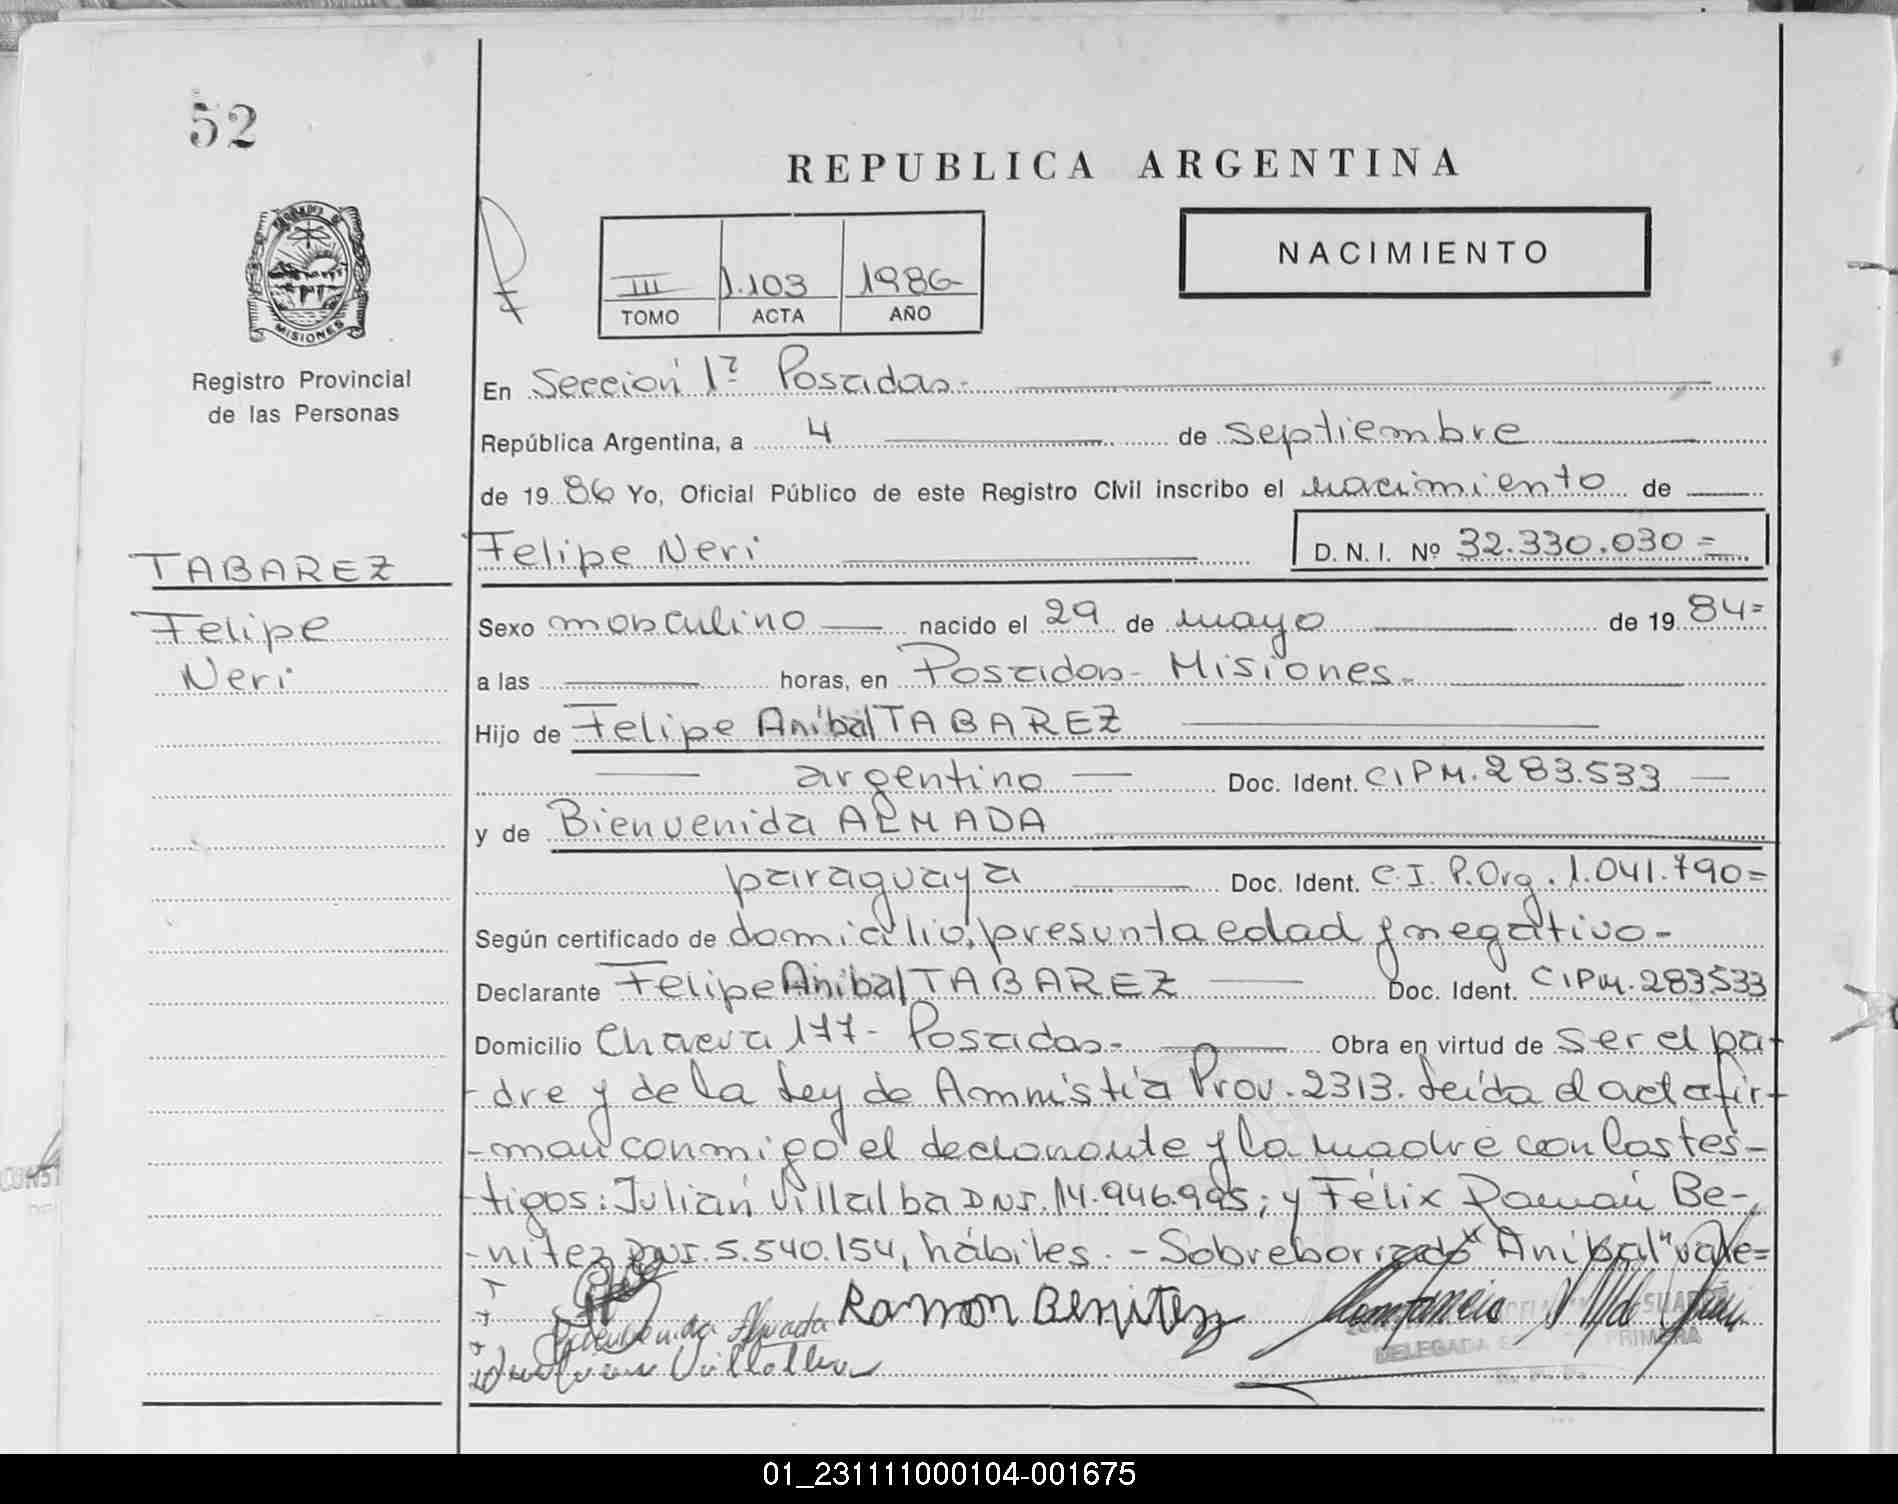 52
REPUBLICA ARGENTINA
NACIMIENTO
III 1.103 1986
TOMO ACTA AÑO
MISIONES
Registro Provincial
de las Personas
En Sección 1ª Posadas.-
República Argentina, a 4 de septiembre
de 1986 Yo, Oficial Público de este Registro Civil inscribo el nacimiento de
TABAREZ
Felipe
Neri
Felipe Neri D. N. I. Nº 32.330.030=
Sexo masculino nacido el 29 de mayo de 1984=
a las horas, en Posadas- Misiones.-
Hijo de Felipe Aníbal TABAREZ
argentino Doc. Ident. CIPM. 283.533
y de Bienvenida ALMADA
paraguaya Doc. Ident. C.I. P. Org. 1.041.790=
Según certificado de domicilio, presunta edad y negativo-
Declarante Felipe Aníbal TABAREZ Doc. Ident. CIPM. 283533
Domicilio Chacra 177- Posadas- Obra en virtud de ser el pa-
-dre y de la Ley de Amnistía Prov. 2313. Leída el acta fir-
-man conmigo el declarante y la madre con los tes-
-tigos: Julián Villalba DNI. 14.946.995; y Félix Ramón Be-
-nitez DNI. 5.540.154, hábiles.- Sobreborrado "Aníbal" vale=
Bienvenida Almada Ramon Benitez
Villalba
DELEGADA PRIMERA
01_231111000104-001675